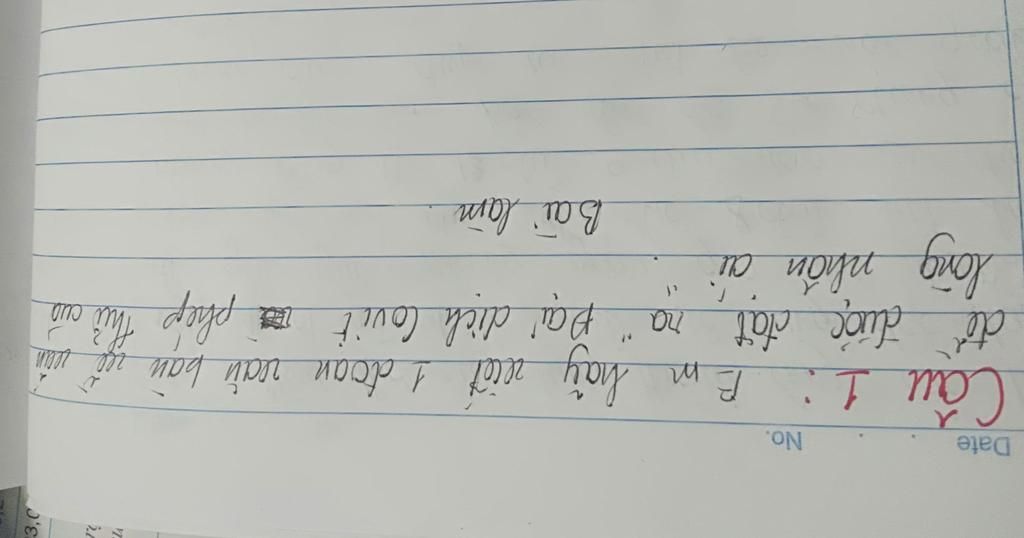 Date . . No.
Câu 1: Em hãy viết 1 đoạn văn bàn về vấn
đề được đặt ra " Đại dịch Covit phép thử của
lòng nhân ái ".
Bài làm.